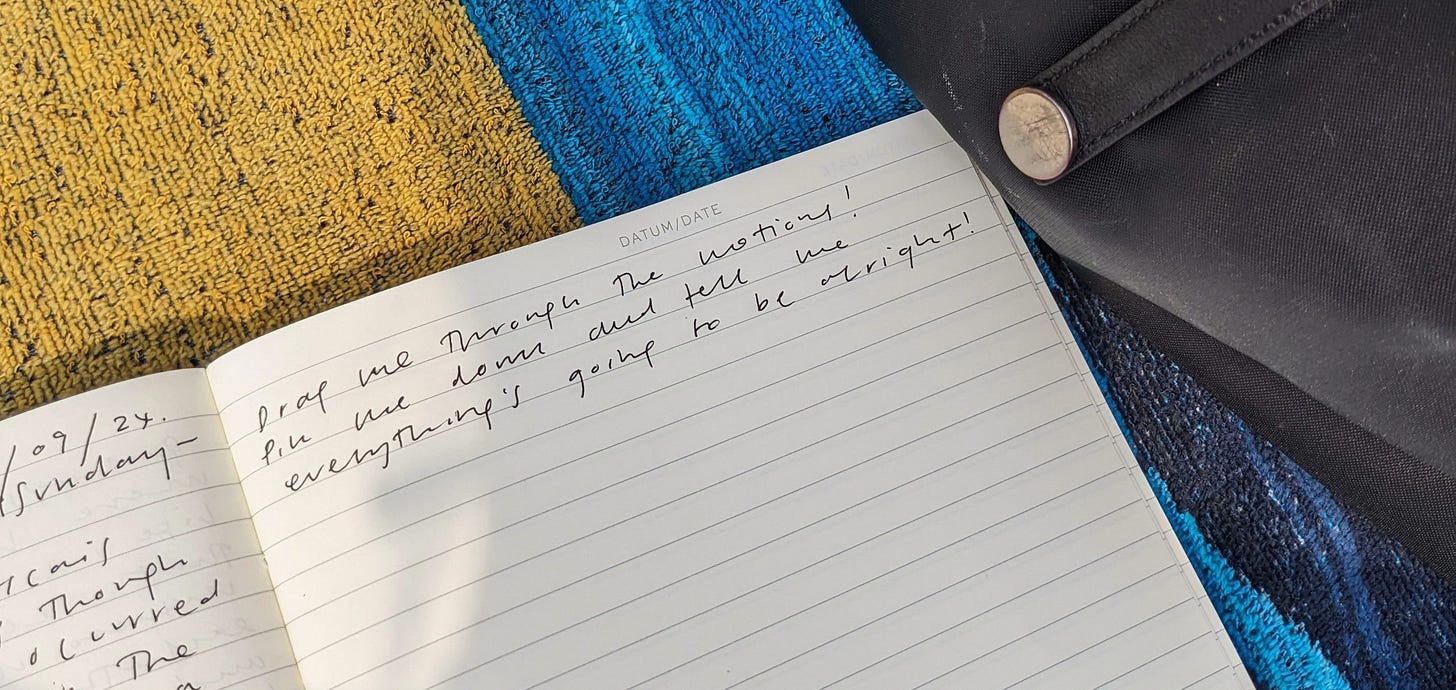 /09/24.
Sunday –
Though
occurred
The
a
DATUM/DATE
Drag me through the motions!
Pin me down and tell me
everything's going to be alright!